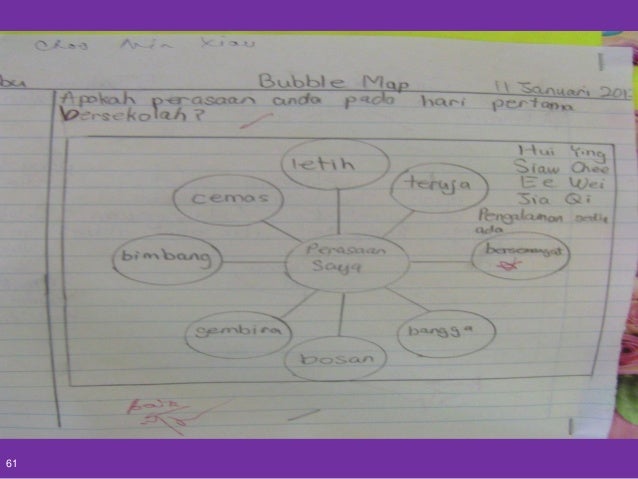 Choo Min Xiau
bu
Bubble Map
11 Januari 201
Apakah perasaan anda pada hari pertama
bersekolah?
Hui Ying
Siaw Chee
Ee Wei
Jia Qi
Pengalaman sedia
ada
letih
teruja
cemas
bersemangat
bimbang
Perasaan
Saya
gembira
bangga
bosan
baik
61